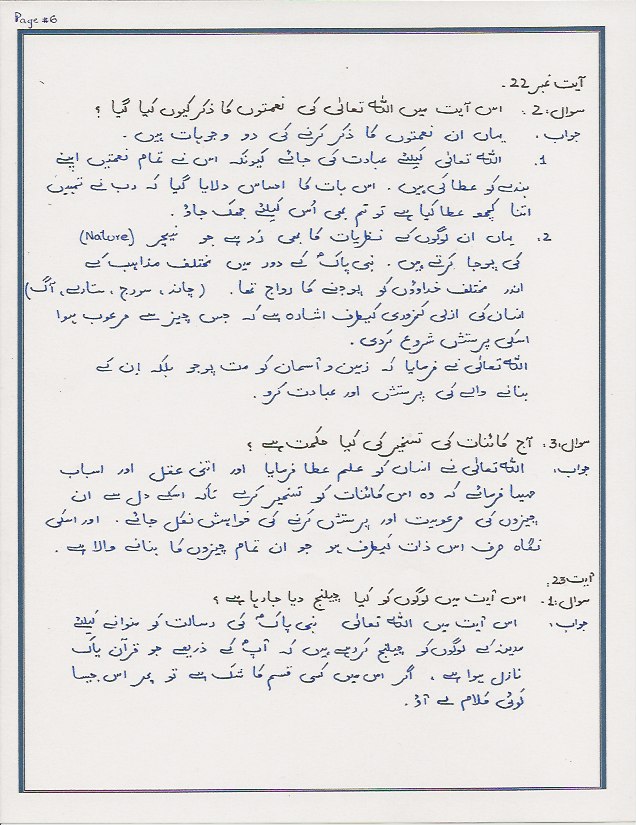 Page #6
آیت نمبر 22.
سوال:2. اس آیت میں اللہ تعالٰی کی نعمتوں کا ذکر کیوں کیا گیا ؟
جواب. یہاں ان نعمتوں کا ذکر کرنے کی دو وجوہات ہیں.
1. اللہ تعالٰی کیلئے عبادت کی جائے کیونکہ اس نے تمام نعمتیں اپنے
بندے کو عطا کی ہیں. اس بات کا احساس دلایا گیا کہ رب نے تمہیں
اتنا کچھ عطا کیا ہے تو تم بھی اُس کیلئے جھک جاؤ.
2. یہاں ان لوگوں کے نظریات کا بھی رَد ہے جو نیچر (Nature)
کی پوجا کرتے ہیں. نبی پاکؐ کے دور میں مختلف مذاہب کے
اندر مختلف خداؤں کو پوجنے کا رواج تھا. (چاند، سورج، ستارے، آگ)
انسان کی ازلی کمزوری کیطرف اشادہ ہے کہ جس چیز سے مرعوب ہوا
اسکی پرستش شروع کردی.
اللہ تعالٰی نے فرمایا کہ زمین و آسمان کو مت پوجو بلکہ اِن کے
بنانے والے کی پرستش اور عبادت کرو.
سوال:3. آج کائنات کی تسخیر کی کیا حکمت ہے ؟
جواب: اللہ تعالٰی نے انسان کو علم عطا فرمایا اور اتنی عقل اور اسباب
مہیا فرمائے کہ وہ اس کائنات کو تسخیر کرے تاکہ اسکے دل سے ان
چیزوں کی مرعوبیت اور پرستش کرنے کی خواہش نکل جائے. اور اسکی
نگاہ صرف اس ذات کیطرف ہو جو ان تمام چیزوں کا بنانے والا ہے.
آیت 23:
سوال:1. اس آیت میں لوگوں کو کیا چیلنج دیا جارہا ہے ؟
جواب: اس آیت میں اللہ تعالٰی نبی پاکؐ کی رسالت کو منوانے کیلئے
مدینہ کے لوگوں کو چیلنج کررہے ہیں کہ آپؐ کے ذریعے جو قرآن پاک
نازل ہوا ہے. اگر اس میں کسی قسم کا شک ہے تو پھر اس جیسا
کوئی کلام لے آؤ.